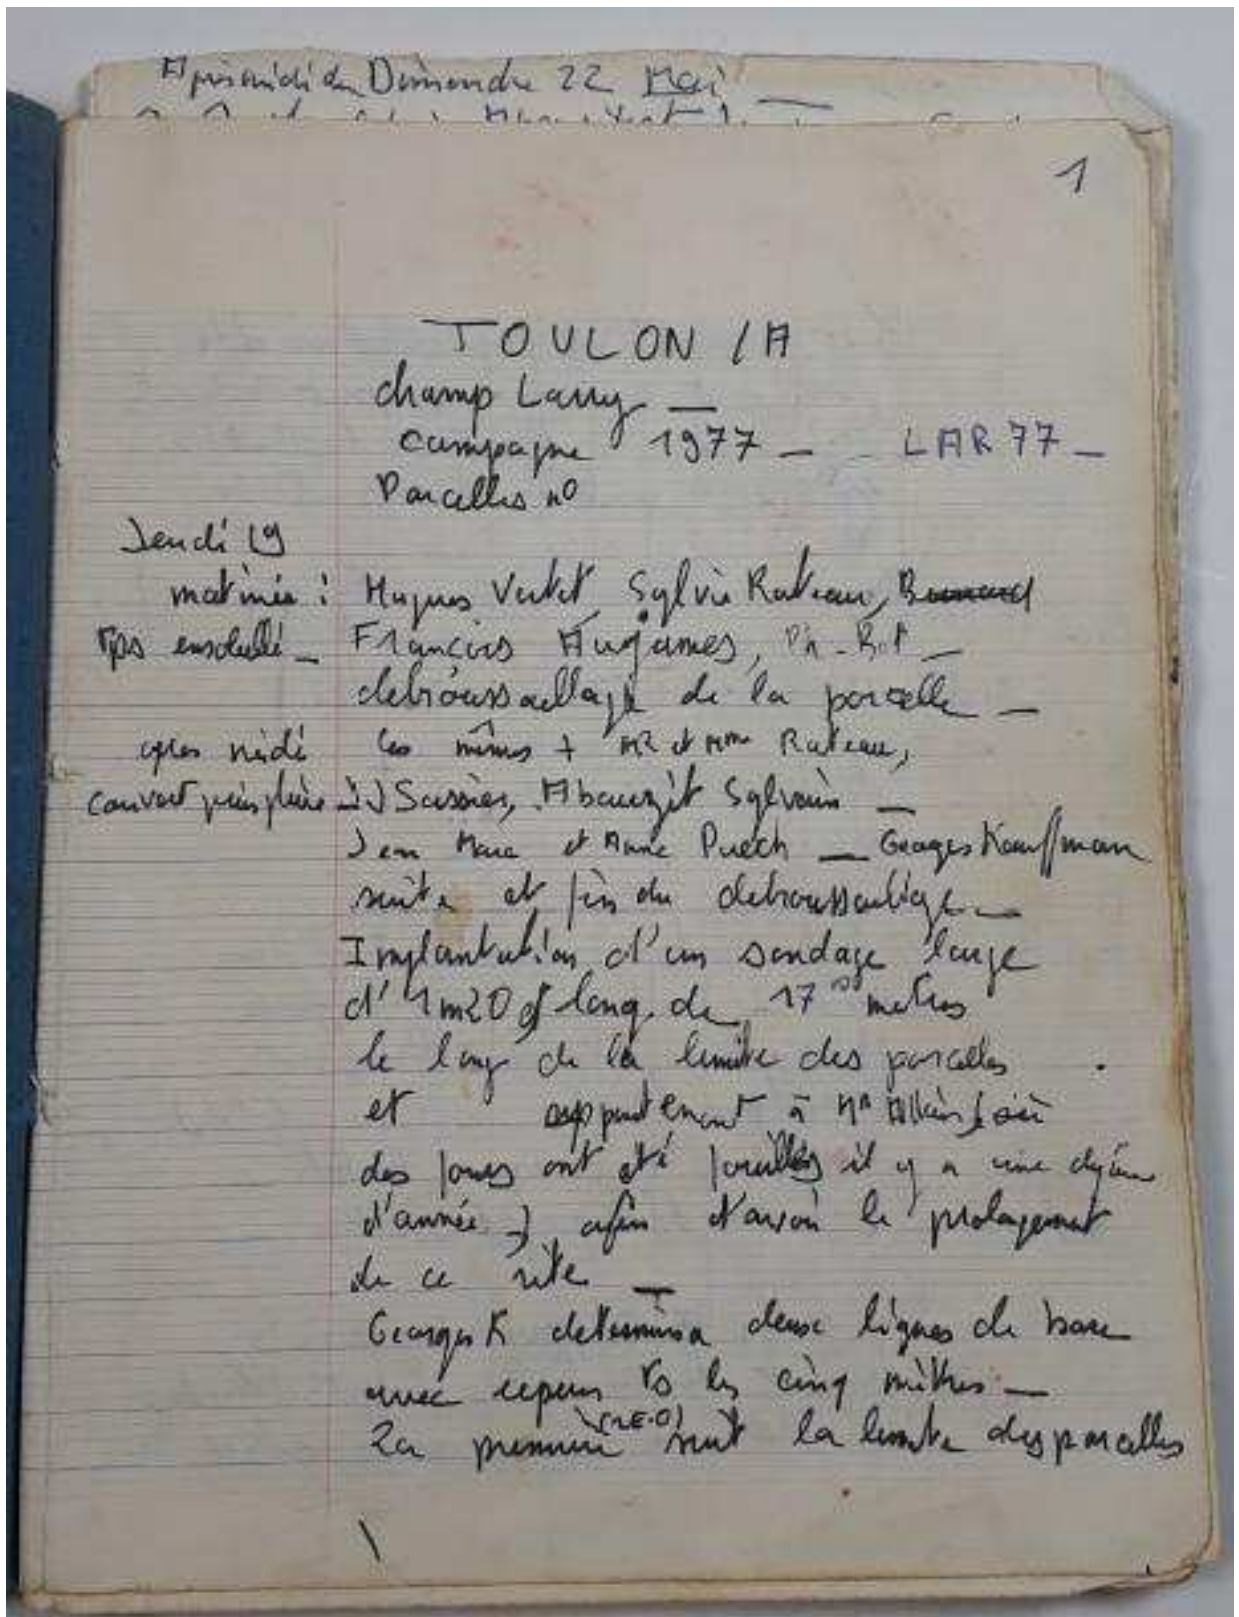 Après midi du Dimanche 22 Mai
1
TOULON / A
champ Larry
campagne 1977 - LAR 77 -
Parcelles n°
Jeudi 19
matinée : Hugues Vertet, Sylvie Rateau,
Tps ensoleillé - François Augames, Ph - Bet -
debroussaillage de la parcelle -
après midi les mêmes + Mr et Mme Rateau,
couvert puis pluie Sassier, Abauzit Sylvain -
Jean Marie et Anne Puech - Georges Kauffman
suite et fin du debroussaillage -
Implantation d'un sondage large
d'1m20 et long de 17 metres
le long de la limite des parcelles
et appartenant à Mr où
des fours ont été fouillés il y a une dizaine
d'année ) afin d'avoir le prolongement
de ce site -
Georges K determina deux lignes de base
avec repères ts les cinq mètres -
La premiere (N.E-O) suit la limite des parcelles